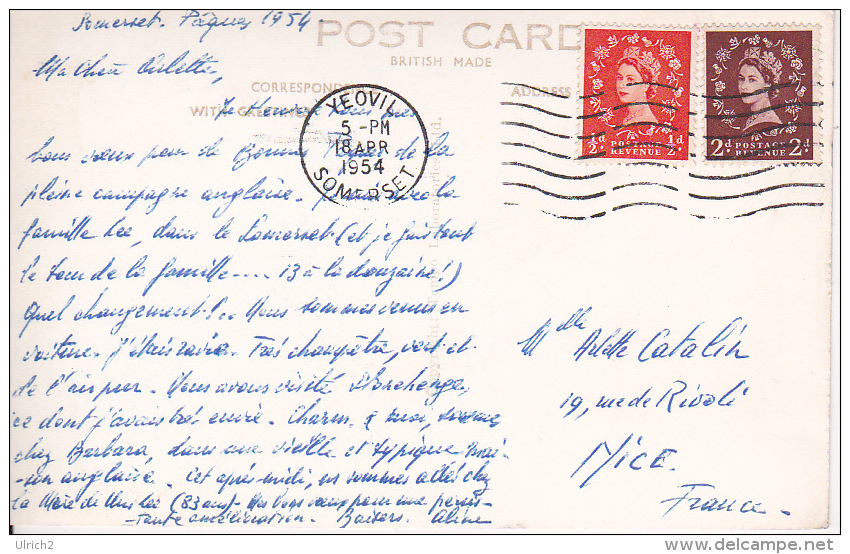 Somerset. Pâques 1954.
POST CARD
BRITISH MADE
Ma Chère Arlette,
CORRESPONDENCE
ADDRESS
WITH GREETINGS
YEOVIL
5 - PM
18 APR
1954
SOMERSET
½d POSTAGE REVENUE ½d
2d POSTAGE REVENUE 2d
bons vœux pour de Bonnes de la
pleine campagne anglaise. avec la
famille Lee, dans le Somerset (et je fais tout
le tour de la famille .... 13 à la douzaine!)
Quel changement!.. Nous sommes venus en
voiture. J'étais ravie. Très champêtre, vert et
de l'air pur. Nous avons visité Stonehenge,
ce dont j'avais très envie. Charm. & moi, sommes
chez Barbara, dans une vieille et typique mai-
son anglaise. Cet après-midi, en sommes allés chez
la Mère de Mrs Lee (83 ans) - Mes bons vœux pour une persis-
-tante amélioration. Baisers. Aline
Mlle Arlette Catalin
19, rue de Rivoli
NICE.
France.
Ulrich2
delcampe.net